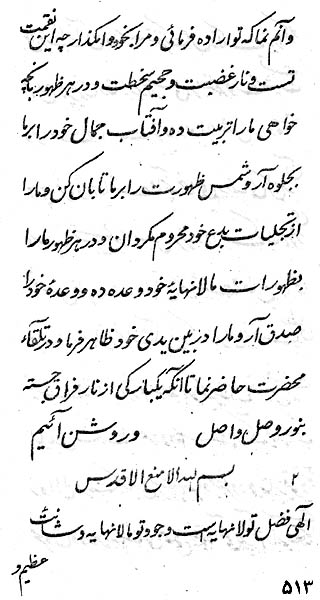 وآنم نما که تو اراده فرمائی و مرا بخود وامگذار چه این نقمت
تست و نار غضبت و جحیم سخطت و در هر ظهور بآنچه
خواهی ما را تربیت ده و آفتاب جمال خود را بر ما
بجلوه آر و شمس ظهورت را بر ما تابان کن و ما را
از تجلیات بدع خود محروم مگردان و در هر ظهور ما را
بظهورات مالانهایهٔ خود وعده ده و وعدهٔ خود را
صدق آر و ما را در بین یدی خود ظاهر فرما و در تلقاء
محضرت حاضر نما تا آنکه یکبارکی از نار فراق جسته
بنور وصل واصل و روشن آئیم
۲ بسم الله الامنع الاقدس
الهی فضل تو لانهایه است وجود تو مالانهایه و شأنت
عظیم و
۵۱۳